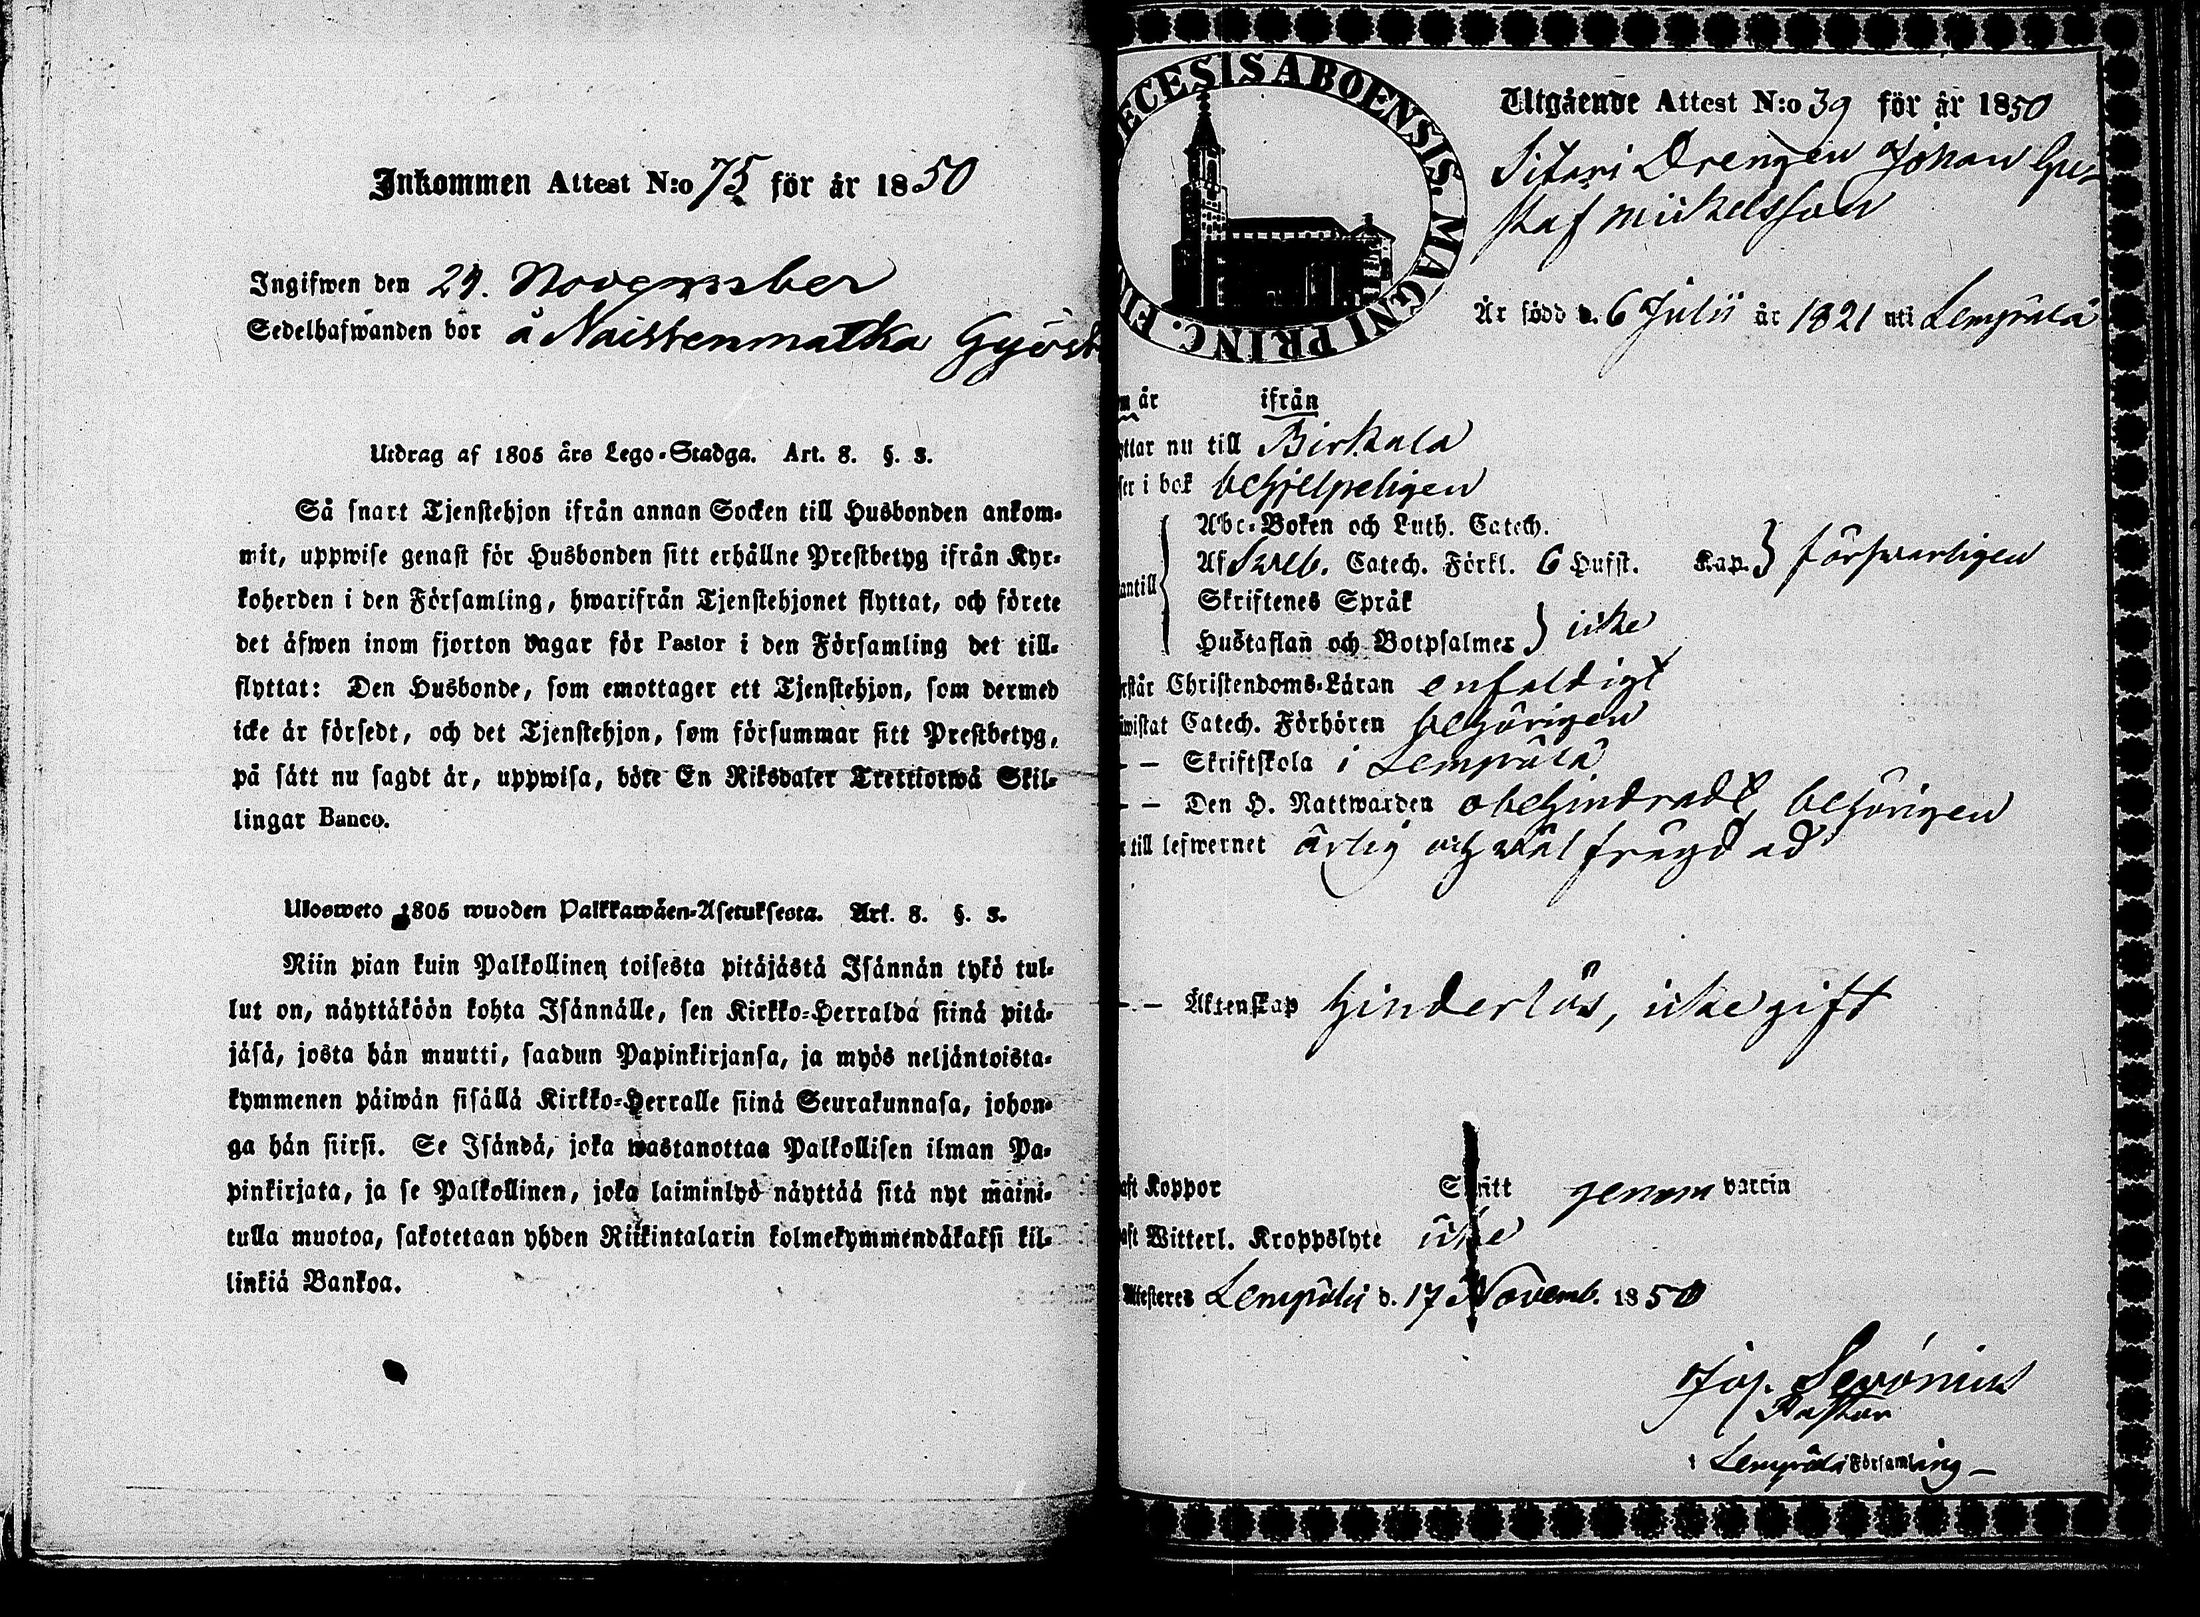 Inkommen Attest N:o 75 för år 1850
Ingifwen den 29. November
Sedelhafwanden bor å Naistenmatka
Utdrag af 1805 års Lego-Stadga. Art. 8. §. 3.
Så snart Tjenstehjon ifrån annan Socken till Husbonden ankom-
mit, uppwise genast för Husbonden sitt erhållne Prestbetyg ifrån Kyr-
koherden i den Församling, hwarifrån Tjenstehjonet flyttat, och förete
det äfwen inom fjorton dagar för Pastor i den Församling det till-
flyttat: Den Husbonde, som emottager ett Tjenstehjon, som dermed
icke är försedt, och det Tjenstehjon, som försummar sitt Prestbetyg,
på sätt nu sagdt är, uppwisa, böte En Riksdaler Trettiotwå Skil-
lingar Banco.
Ulosweto 1805 wuoden Palkkawäen-Asetuksesta. Art. 8. §. 3.
Niin pian kuin Palkollinen toisesta pitäjästä Isännän tykö tul-
lut on, näyttäköön kohta Isännälle, sen Kirkko-Herralda siinä pitä-
jäsä, josta hän muutti, saadun Papinkirjansa, ja myös neljäntoista-
kymmenen päiwän sisällä Kirkko-Herralle siinä Seurakunnasa, johon-
ga hän siirsi. Se Isändä, joka wastanottaa Palkollisen ilman Pa-
pinkirjata, ja se Palkollinen, joka laiminlyö näyttää sitä nyt maini-
tulla muotoa, sakotetaan yhden Riikintalarin kolmekymmendäkaksi kil-
linkiä Bankoa.
ECESIS ABOENSIS. MAGNI PRINC. FIN
Utgående Attest N:o 39 för år 1850
Sitari Drengen Johan Gu-
staf Mickelsson
Är född d. 6 Julii år 1821 uti Lempälä
är ifrån
yttar nu till Birkala
ser i bok behjelpeligen
Abc-Boken och Luth. Catech.
antill Af Sveb. Catech. Förkl. 6 Hufst. Kap. } försvarligen
Skriftenes Språk
Hustaflan och Botpsalmer } icke
rstår Christendoms-Läran enfaldigt
iwistat Catech. Förhören behörigen
- - Skriftskola i Lempälä
- - Den H. Nattwarden obehindradt, behörigen
till lefwernet ärlig och väl frägdad
- - Äktenskap hinderlös, icke gift
aft Koppor Skritt genom vaccin
aft Witterl. Kroppslyte icke
Attesteres Lempälä d. 17 Novemb. 1850
Jos. Serónius
Pastor
i Lempälä Församling